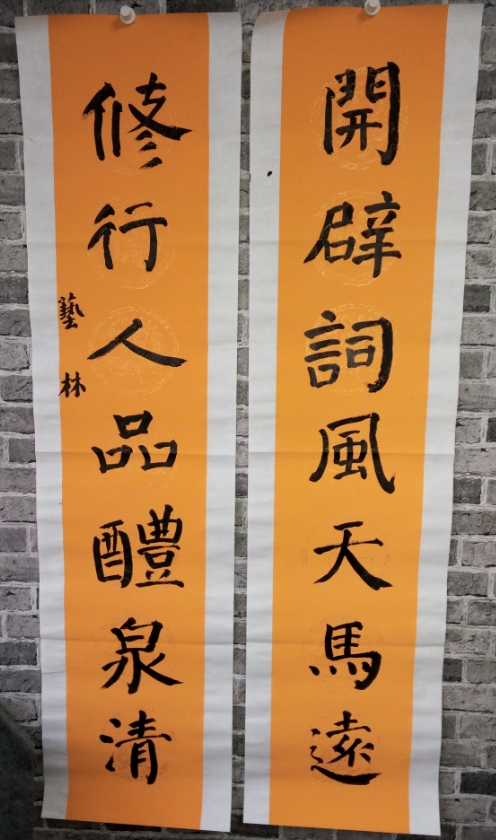 開辟詞風天馬遠
修行人品醴泉清
藝林